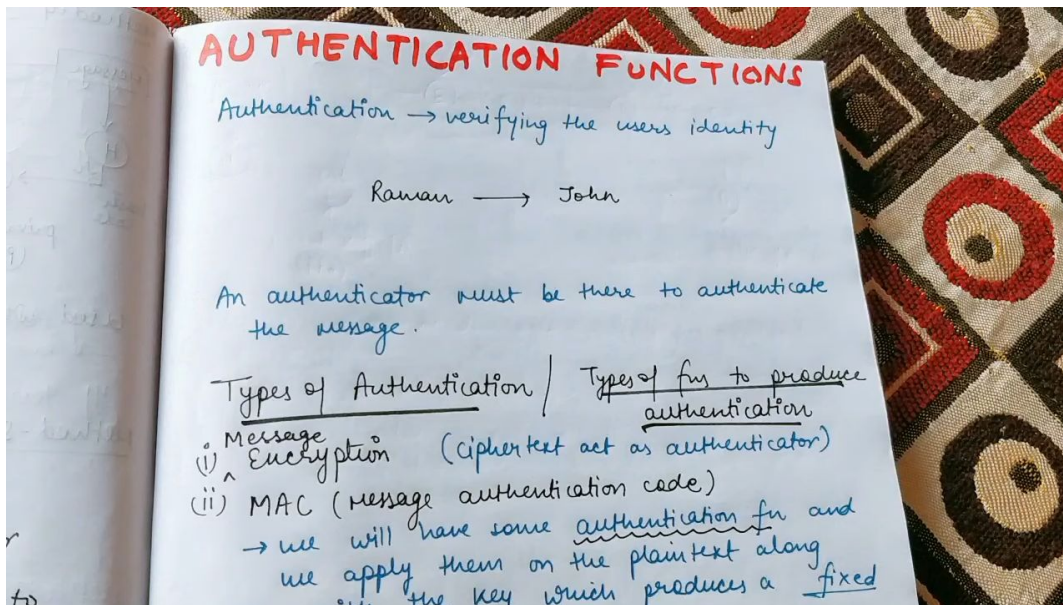 AUTHENTICATION FUNCTIONS
Authentication → verifying the users identity
Raman → John
An authenticator must be there to authenticate
the message.
Types of Authentication / Types of fns to produce
authentication
(i) Message Encryption (ciphertext act as authenticator)
(ii) MAC (message authentication code)
→ we will have some authentication fn and
we apply them on the plaintext along
the key which produces a fixed
to